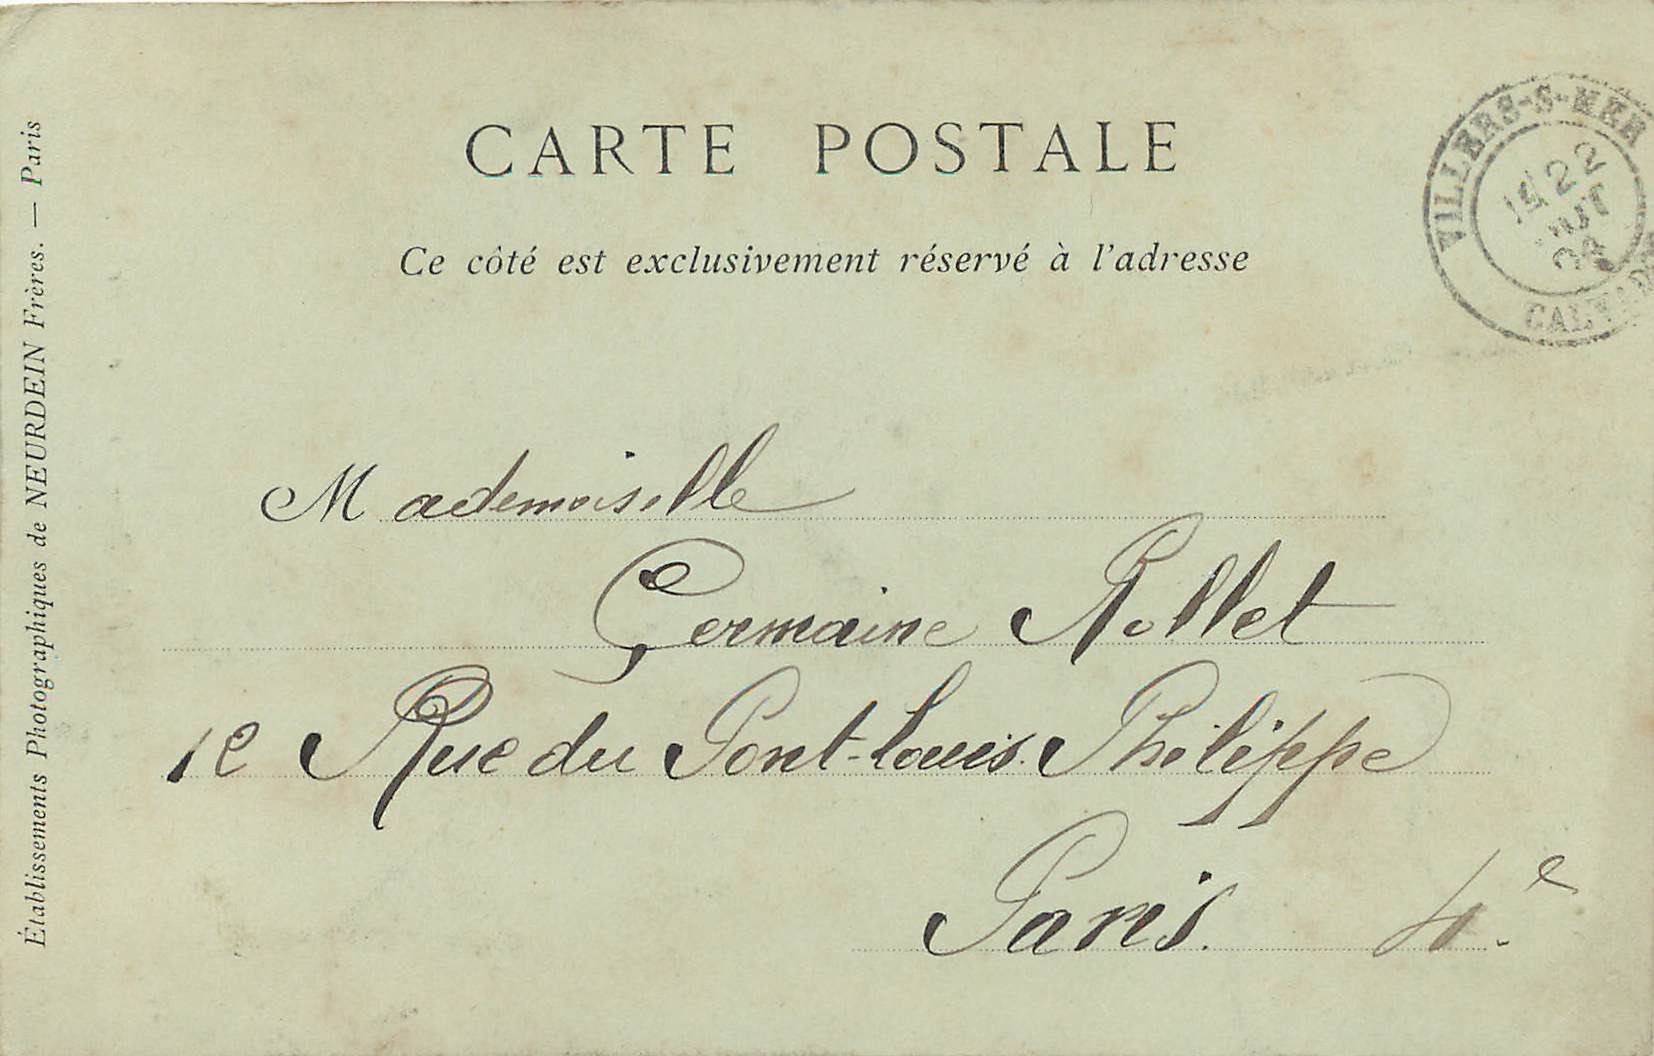 CARTE POSTALE
Ce côté est exclusivement réservé à l'adresse
Établissements Photographiques de NEURDEIN Frères. — Paris
VILLERS-S-MER
22
CALVADOS
Mademoiselle
Germaine Rollet
Rue du Pont-Louis Philippe
Paris. 4e